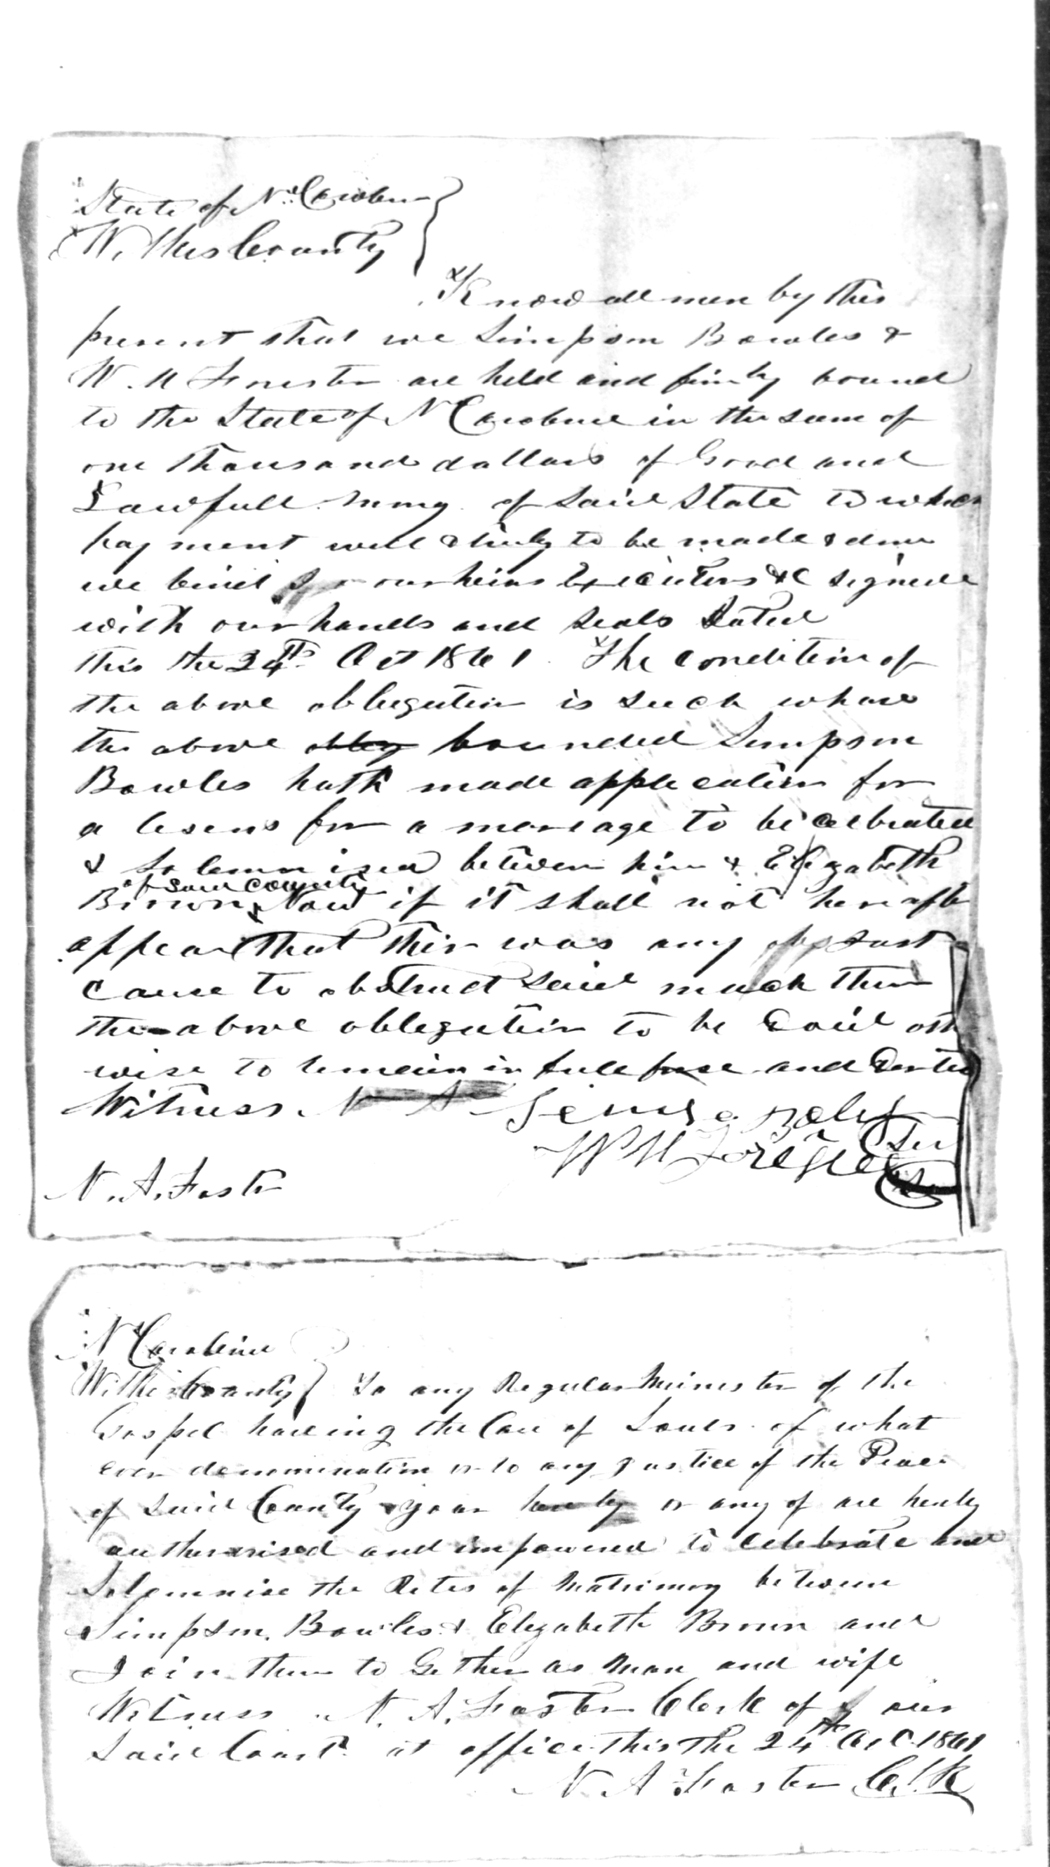 State of N. Carolina
Wilkes County
Know all men by this
present that we Simpson Bowles &
W. H Forester are held and firmly bound
to the State of N Carolina in the sum of
one thousand dollars of Good and
Lawfull mony of Said State to which
payment well & truly to be made & done
we bind our heirs Executors &C signed
with our hands and seals Dated
this the 24th Oct 1861 The condition of
the above obligation is such whare
the above bounded Simpson
Bowles hath made application for
a lisens for a marriage to be celebrated
& Solemnised between him & Elizabeth
Brown of said county Now if it shall not hereafter
appear that thir was any Just
cause to obstruct said match then
the above obligation to be void oth
wise to remain in full force and
Witness N A
W H Forester
N. A. Foster
N Carolina
Wilkes County To any Regular Minister of the
Gospel having the Care of Souls of what
ever denomination or to any Justice of the Peace
of Said County you or any of are hereby
authorised and impowered to celebrate and
Solemnise the Rites of Matrimony between
Simpson Bowles & Elizabeth Brown and
Join them to Gether as Man and wife
Witness N. A. Foster Clerk of our
Said Court at office this the 24th Oct 1861
N. A Foster Clk